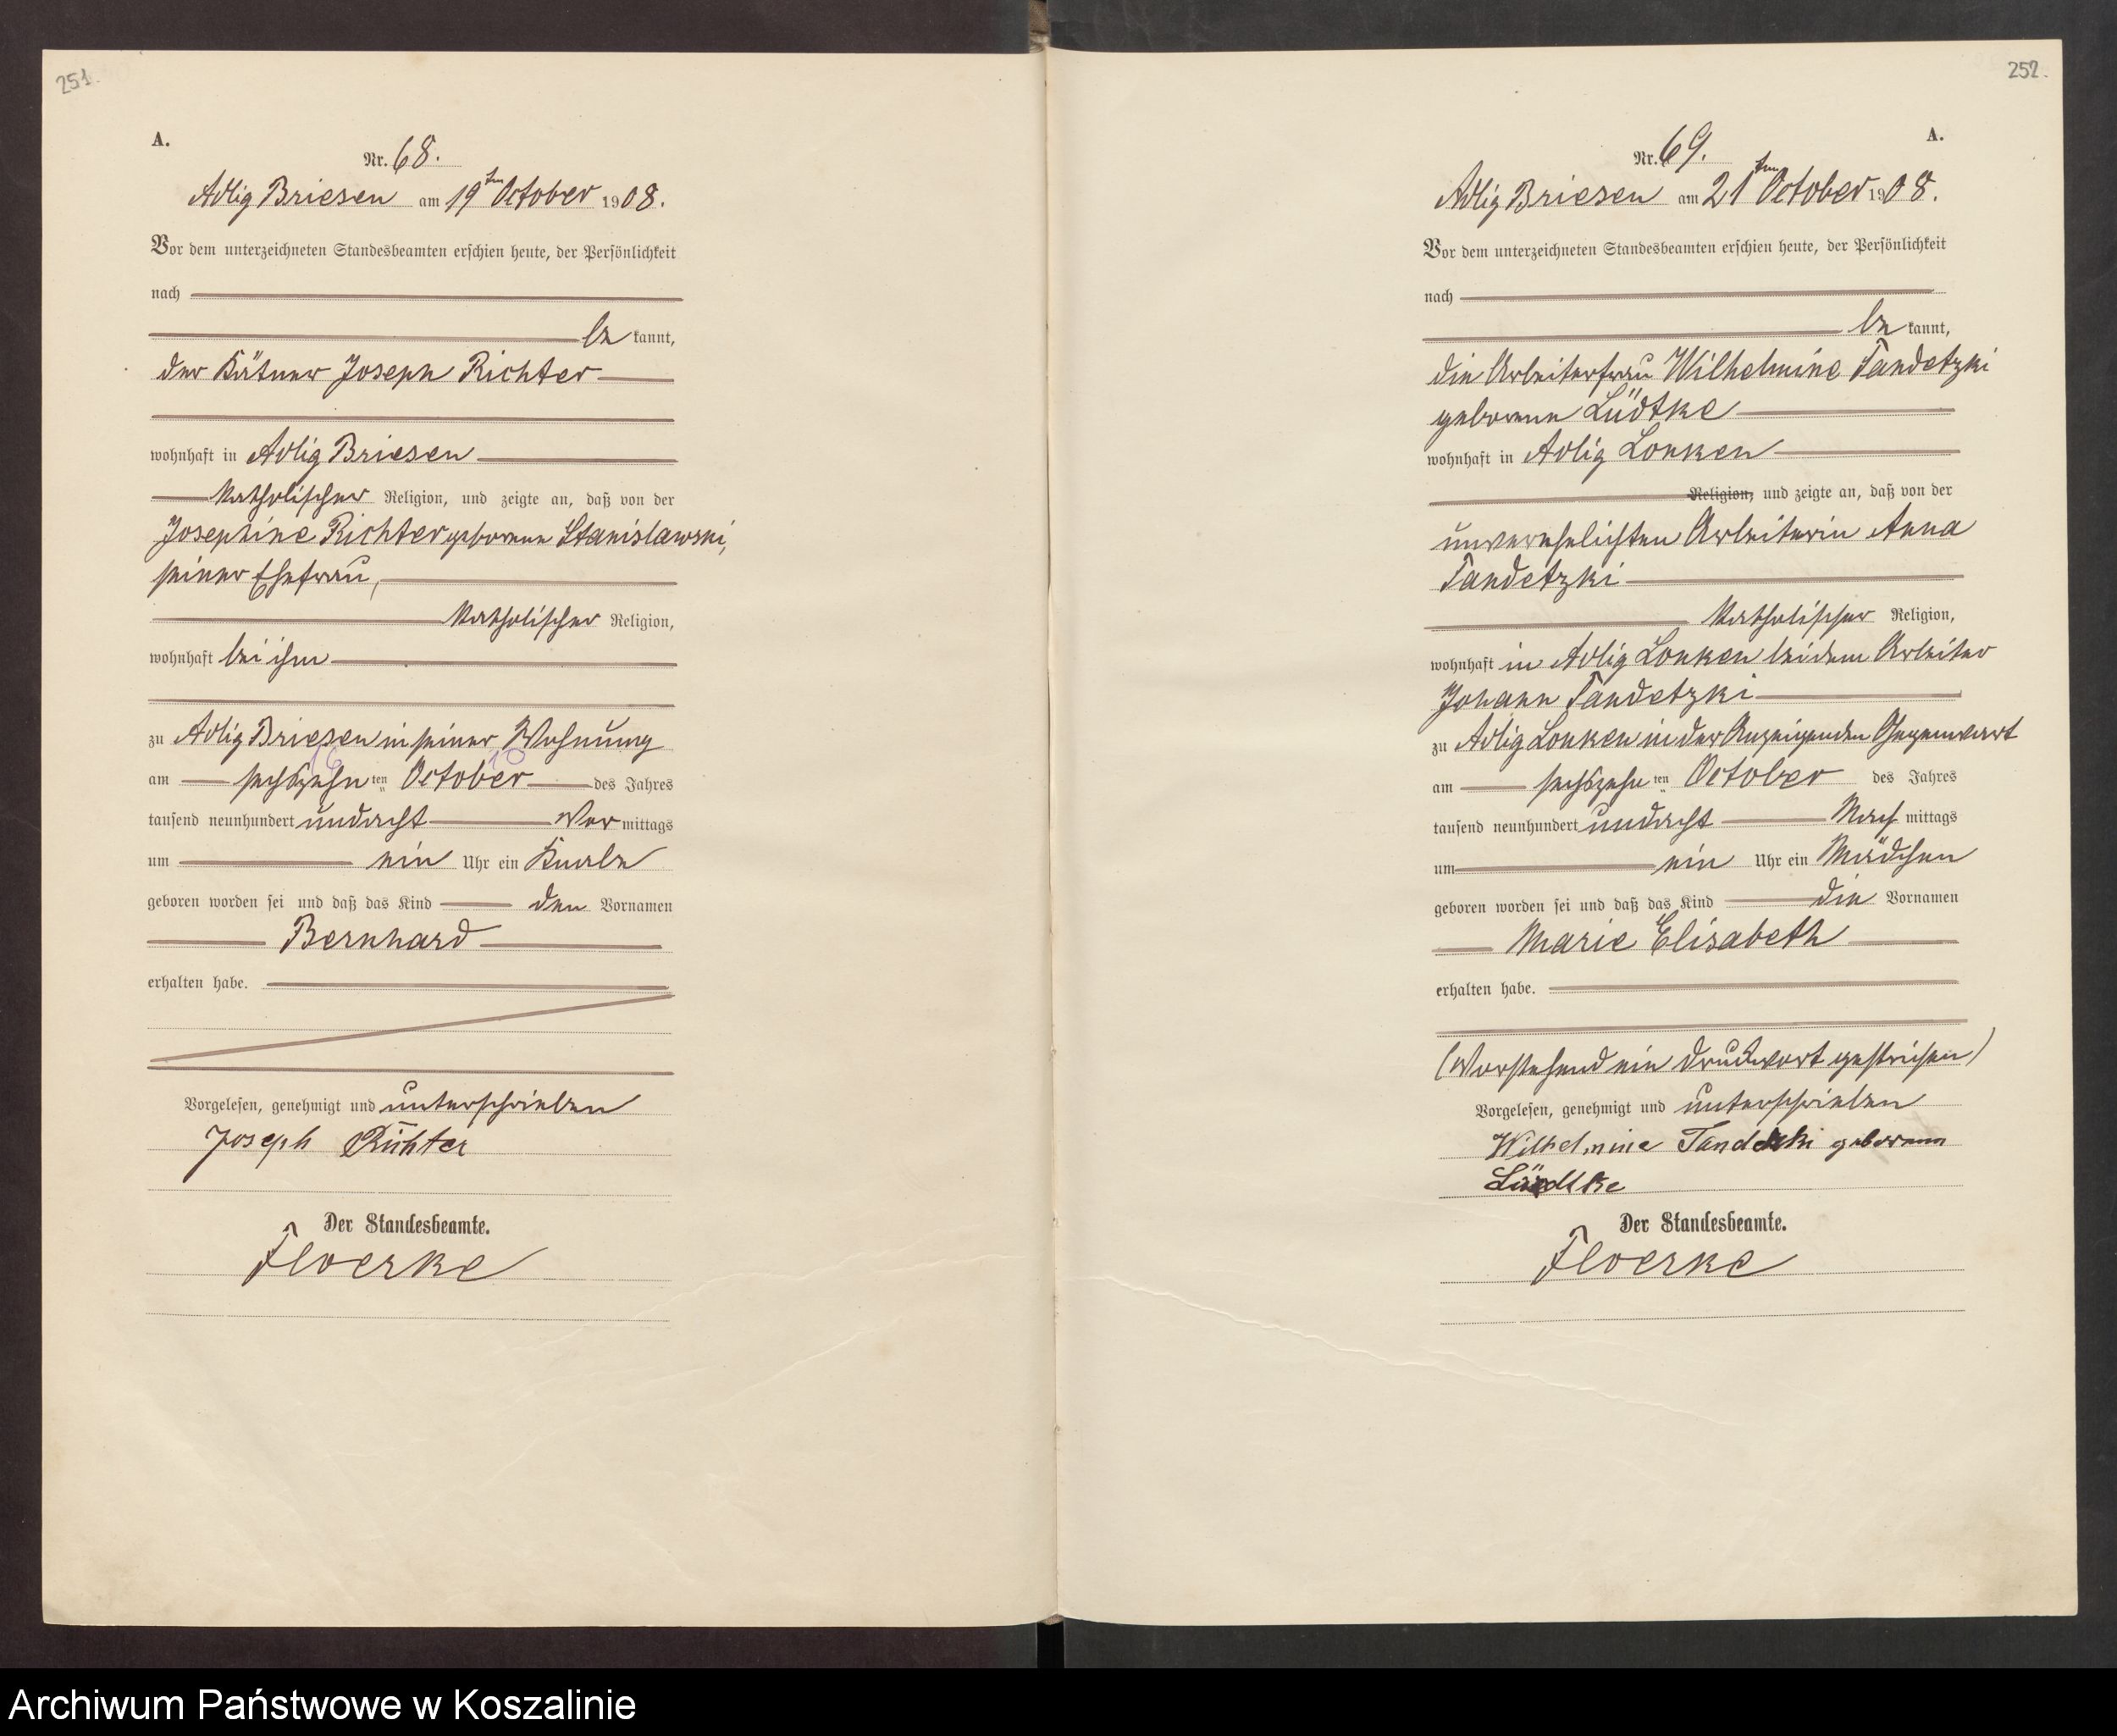 251.
A.
Nr. 68.
Adlig Briesen am 19ten October 1908.
Vor dem unterzeichneten Standesbeamten erschien heute, der Persönlichkeit
nach
be kannt,
der Kätner Joseph Richter
wohnhaft in Adlig Briesen
katholischer Religion, und zeigte an, daß von der
Josephine Richter geborene Stanislawski,
seiner Ehefrau,
katholischer Religion,
wohnhaft bei ihm
zu Adlig Briesen in seiner Wohnung
16 10
am sechszehn ten October des Jahres
tausend neunhundert und acht Vor mittags
um ein Uhr ein Knabe
geboren worden sei und daß das Kind den Vornamen
Bernhard
erhalten habe.
Vorgelesen, genehmigt und unterschrieben
Joseph Richter
Der Standesbeamte.
Floerke
252.
A.
Nr. 69.
Adlig Briesen am 21ten October 1908.
Vor dem unterzeichneten Standesbeamten erschien heute, der Persönlichkeit
nach
be kannt,
die Arbeiterfrau Wilhelmine Tandetzki
geborene Lüdtke
wohnhaft in Adlig Lonken
Religion, und zeigte an, daß von der
unverehelichten Arbeiterin Anna
Tandetzki
katholischer Religion,
wohnhaft in Adlig Lonken bei dem Arbeiter
Johann Tandetzki
zu Adlig Lonken in der Anzeigenden Gegenwart
am sechszehn ten October des Jahres
tausend neunhundert und acht Nach mittags
um ein Uhr ein Mädchen
geboren worden sei und daß das Kind die Vornamen
Marie Elisabeth
erhalten habe.
(Vorstehend ein Druckwort gestrichen)
Vorgelesen, genehmigt und unterschrieben
Wilhelmine Tandetzki geborene
Lüdtke
Der Standesbeamte.
Floerke
Archiwum Państwowe w Koszalinie